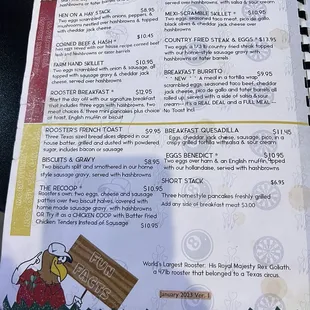 or tater tots
HEN ON A HAY STACK $8.95
Two eggs scrambled with onions, peppers, &
mushrooms nested over hashbrowns & topped
with cheddar jack cheese
CORNED BEEF & HASH $10.45
Two eggs mixed with our house recipe corned beef
hash and hashbrowns or tater tots
FARM HAND SKILLET $10.95
Two eggs scrambled with onion & sausage, all
topped with sausage gravy & cheddar jack
cheese, served over hashbrowns
ROOSTER BREAKFAST * $12.95
Start the day off with our signature breakfast
that includes three eggs with hashbrowns, two
meat choices & three mini pancakes plus choice
of toast, English muffin or biscuit
ROOSTER'S FRENCH TOAST $9.95
Two Texas sized bread slices dipped in our
house batter, grilled and dusted with powdered
sugar, includes bacon or sausage
BISCUITS & GRAVY $8.95
Two biscuits split and smothered in our home
style sausage gravy, served with hashbrowns
THE RECOOP * $10.95
Rooster's own, two eggs, cheese and sausage
patties over two biscuit halves, covered with
home made sausage gravy, with hashbrowns
OR Try it as a CHICKEN COOP with Batter Fried
Chicken Tenders instead of Sausage
$10.95
served over hashbrowns, with salsa & sour cream
MEXI-SCRAMBLE SKILLET * $10.95
Two eggs, seasoned taco meat, pico de gallo,
black olives & cheddar jack cheese over
hashbrowns
COUNTRY FRIED STEAK & EGGS * $13.95
Two eggs, a 1/3 lb country fried steak topped
with our home-style sausage gravy with
hashbrowns or tater tots
BREAKFAST BURRITO
* NEW * A meal in a tortilla wrap
scrambled eggs, seasoned taco beef, cheddar
jack cheese, pico de gallo and tater tots all
rolled up, served with a side of salsa & sour
cream - it's a REAL DEAL and a FULL MEAL
No Toast
BREAKFAST QUESADILLA $11.45
Eggs, cheddar jack cheese, sausage, pico in
crispy grilled tortilla w/salsa & sour cream
EGGS BENEDICT * $10.95
Two eggs over ham & an English muffin, topped
with our hollandaise, served with hashbrowns
SHORT STACK $6.95
Three homestyle pancakes freshly grilled
Add any side of breakfast meat $3.00
FUN
FACTS
World's Largest Rooster: His Royal Majesty Rex Goliath,
a 47lb rooster that belonged to a Texas circus.
January 2023 Ver. 1